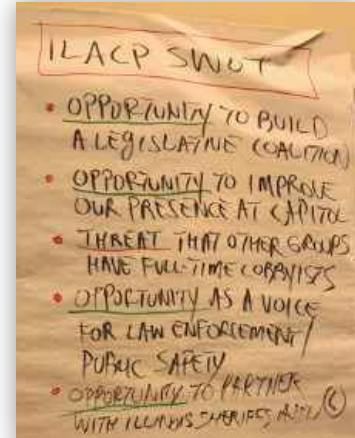 ILACP SWOT
• OPPORTUNITY TO BUILD
A LEGISLATIVE COALITION
• OPPORTUNITY TO IMPROVE
OUR PRESENCE AT CAPITOL
• THREAT THAT OTHER GROUPS
HAVE FULL-TIME LOBBYISTS
• OPPORTUNITY AS A VOICE
FOR LAW ENFORCEMENT/
PUBLIC SAFETY
• OPPORTUNITY TO PARTNER
WITH ILLINOIS SHERIFFS